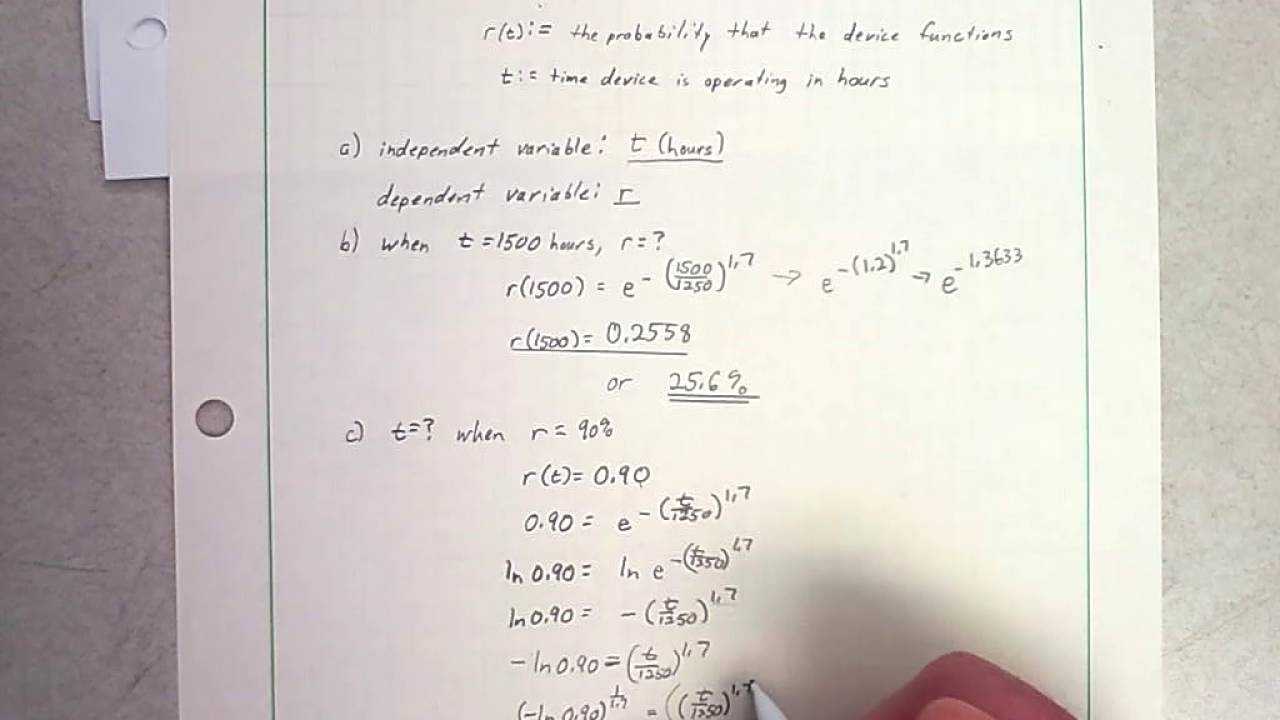 r(t):= the probability that the device functions
t:= time device is operating in hours
a) independent variable: t (hours)
dependent variable: r
b) when t=1500 hours, r=?
r(1500) = e^-(1500/1250)^1.7 → e^-(1.2)^1.7 → e^-1.3633
r(1500) = 0.2558
or 25.6%
c) t=? when r = 90%
r(t) = 0.90
0.90 = e^-(t/1250)^1.7
ln 0.90 = ln e^-(t/1250)^1.7
ln 0.90 = -(t/1250)^1.7
-ln 0.90 = (t/1250)^1.7
(-ln 0.90)^1/1.7 = ((t/1250)^1.7